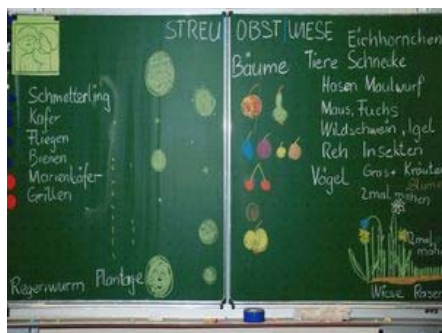 STREU OBSTWIESE
Schmetterling
Käfer
Fliegen
Bienen
Marienkäfer
Grillen
Regenwurm Plantage
Bäume
Eichhörnchen
Tiere Schnecke
Hasen Maulwurf
Maus, Fuchs
Wildschwein, Igel
Reh Insekten
Vögel
Gras + Kräuter
Blumen
2mal mähen
2mal
mähen
Wiese Rasen